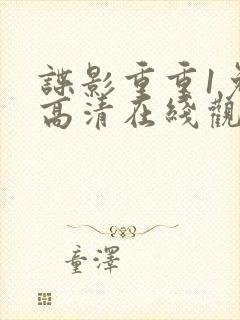 諜影重重1
高清在綫觀
童澤